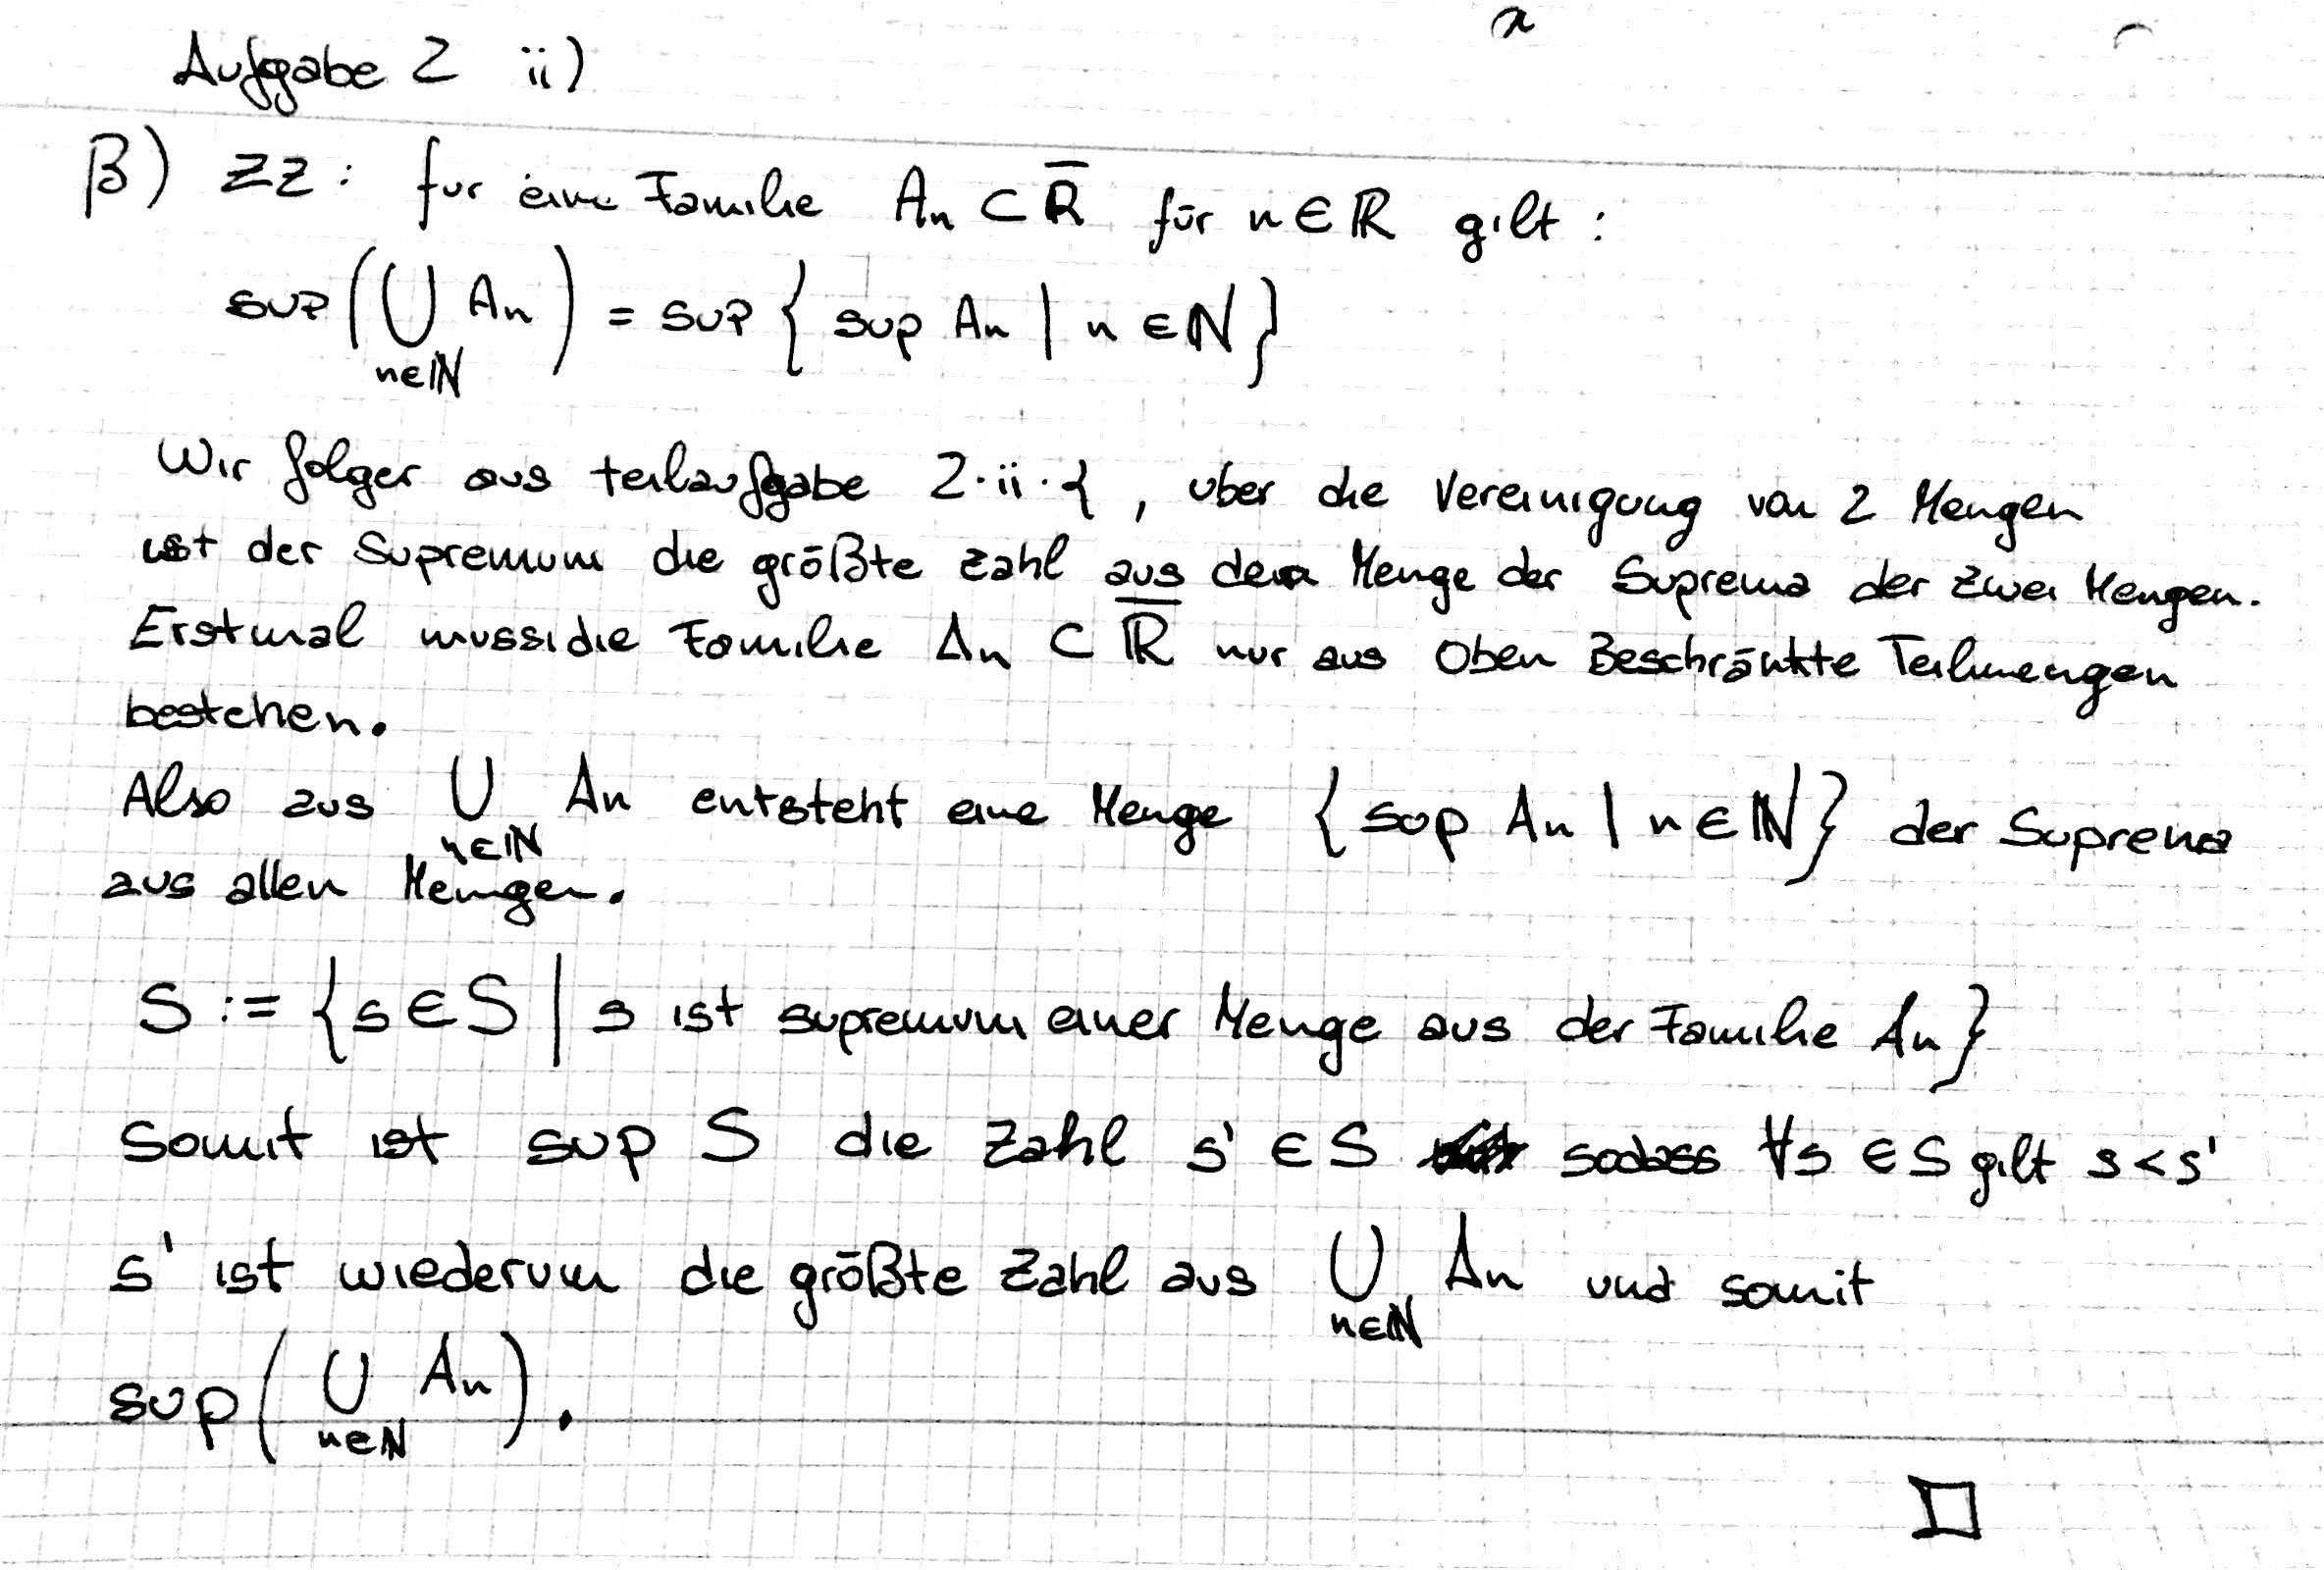 Aufgabe 2 ii)
β) ZZ: für eine Familie Aₙ ⊂ ℝ̅ für n ∈ ℝ gilt :
sup ( ⋃_{n∈ℕ} Aₙ ) = sup { sup Aₙ | n ∈ ℕ }
Wir folger aus teilaufgabe 2.ii.α , über die Vereinigung von 2 Mengen
ist der Supremum die größte Zahl aus der Menge der Suprema der zwei Mengen.
Erstmal muss die Familie Aₙ ⊂ ℝ̅ nur aus Oben Beschränkte Teilmengen
bestehen.
Also aus ⋃_{n∈ℕ} Aₙ entsteht eine Menge { sup Aₙ | n ∈ ℕ } der Suprema
aus allen Mengen.
S := { s ∈ S | s ist supremum einer Menge aus der Familie Aₙ }
Somit ist sup S die Zahl s' ∈ S sodass ∀s ∈ S gilt s < s'
s' ist wiederum die größte Zahl aus ⋃_{n∈ℕ} Aₙ und somit
sup ( ⋃_{n∈ℕ} Aₙ ) .
□